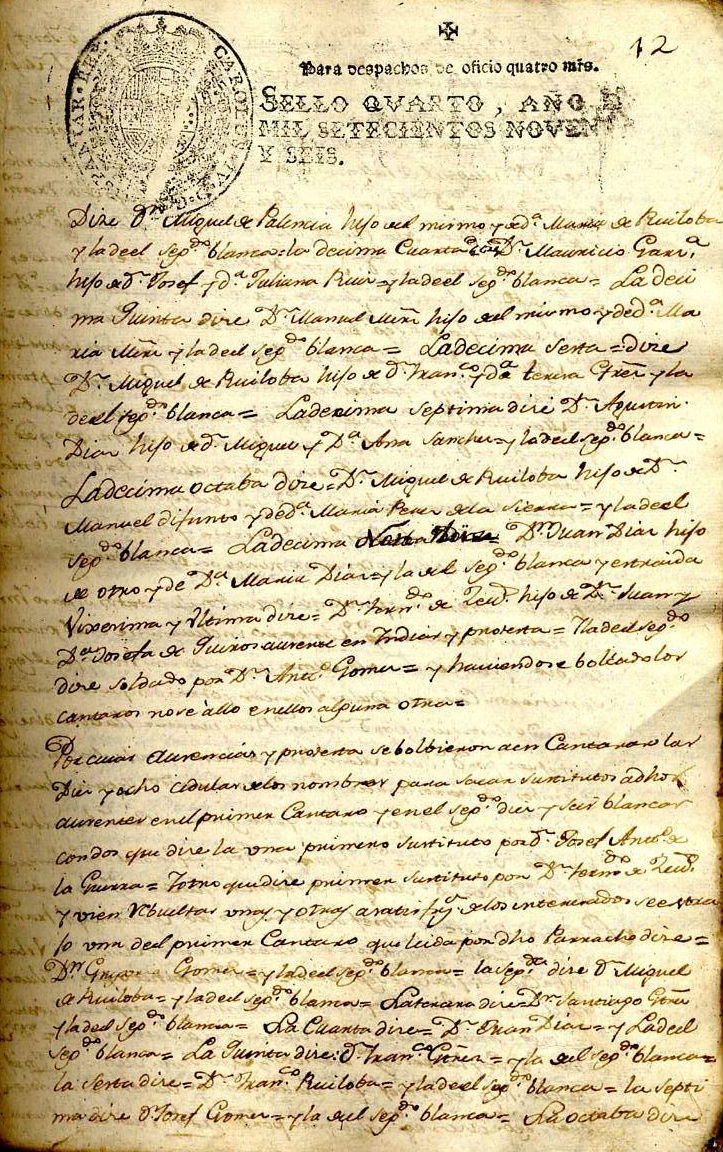 12
CAROLUS IV
Para despachos de oficio quatro mrs.
SELLO QVARTO, AÑO D
MIL SETECIENTOS NOVEN
Y SEIS.
Dize Dn. Miguel de Palencia hijo del mismo y de Da. Maria de Ruiloba
y la deel segdo. blanca = la decima Cuarta Dn. Mauricio Gara.
hijo de Dn. Josef y Da. Juliana Ruiz = y la deel segdo. blanca = La deci
ma Quinta dice Dn. Manuel hijo del mismo y de Da. Ma
ria y la deel segdo. blanca = La decima sesta = dize
Dn. Miguel de Ruiloba hijo de Dn. Franco. y Da. teresa Gtrez y la
deel segdo. blanca = La decima septima dice Dn. Agustin
Diaz hijo de Dn. Miguel y Da. Ana Sanchez = y la deel segdo. blanca =
La decima octaba dize = Dn. Miguel de Ruiloba hijo de Dn.
Manuel difunto y de Da. Maria Perez de la Sierra = y la deel
segdo. blanca = La decima Dn. Juan Diaz hijo
de otro y de Da. Maria Diaz = y la del segdo. blanca y extraida
Vixesima y Vltima dize = Dn. Ferndo. de hijo de Dn. Juan y
Da. Josefa de Quiros ausente en Indias y protesta = Y la deel segdo.
dize soldado por Dn. Anto. Gomez = y haviendose bolteado los
cantaros no se allo en ellos alguna otra =
Por cuias Ausencias y protesta se bolbieron a en Cantarar las
Diez y ocho cedulas de los nombres para sacar sustitutos a dhos
ausentes en el primer Cantaro y en el segdo. diez y seis blancas
con dos que dize la vna primero sustituto por Dn. Josef Anto. de
la Guerra = Y otro que dize primer sustituto por Dn. Ferndo. de
y vien rebueltas vnas y otras a satisfn. de los interesados se extra
jo vna del primer Cantaro que leida por dho Parrocho dize =
Dn. Gomez = y la deel segdo. blanca = la segda. dize Dn. Miguel
de Ruiloba = y la deel segdo. blanca = La tercera dize = Dn. Santiago Gtrez
y la deel segdo. blanca = La Cuarta dize = Dn. Juan Diaz = y La deel
segdo. blanca = La Quinta dize: Dn. Franco. Gtrez = y la del segdo. blanca =
la sesta dize = Dn. Franco. Ruiloba = y la deel segdo. blanca = la septi
ma dize Dn. Josef Gomez = y la del segdo. blanca = La octaba dize